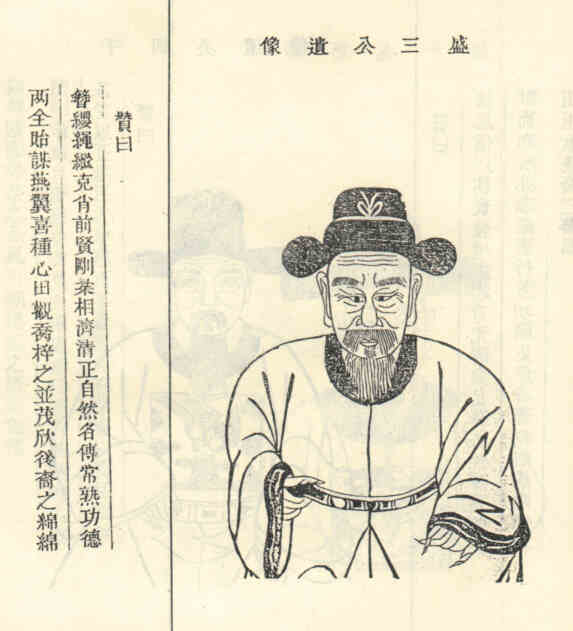 盛三公遺像
贊曰
簪纓繩繼克肖前賢剛柔相濟清正自然名傳常熟功德
两全貽謀燕翼喜種心田觀喬梓之並茂欣後裔之綿綿